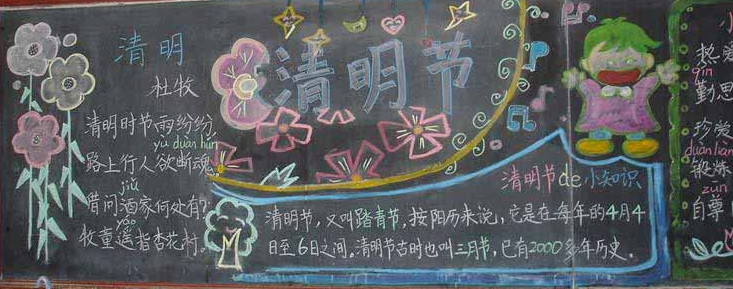 清明
杜牧
清明时节雨纷纷
yù duàn hún
路上行人欲断魂
jiǔ
借问酒家何处有?
yáo
牧童遥指杏花村。
清明节
清明节de小知识
清明节,又叫踏青节,按阳历来说,它是在每年的4月4
日至6日之间,清明节古时也叫三月节,已有2000多年历史.
小
热爱
qín
勤思
珍爱
duàn liàn
锻炼
zūn
自尊